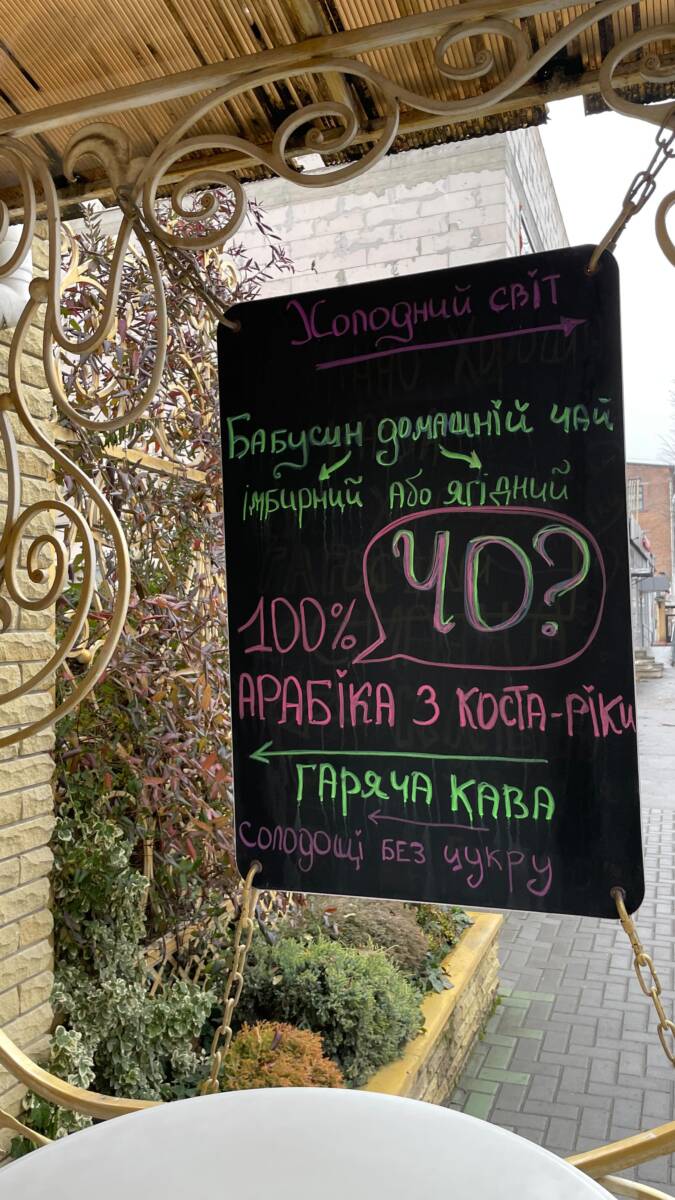 Холодний світ
Бабусин домашній чай
імбирний або ягідний
ЧО?
100%
АРАБІКА З КОСТА-РІКИ
ГАРЯЧА КАВА
солодощі без цукру